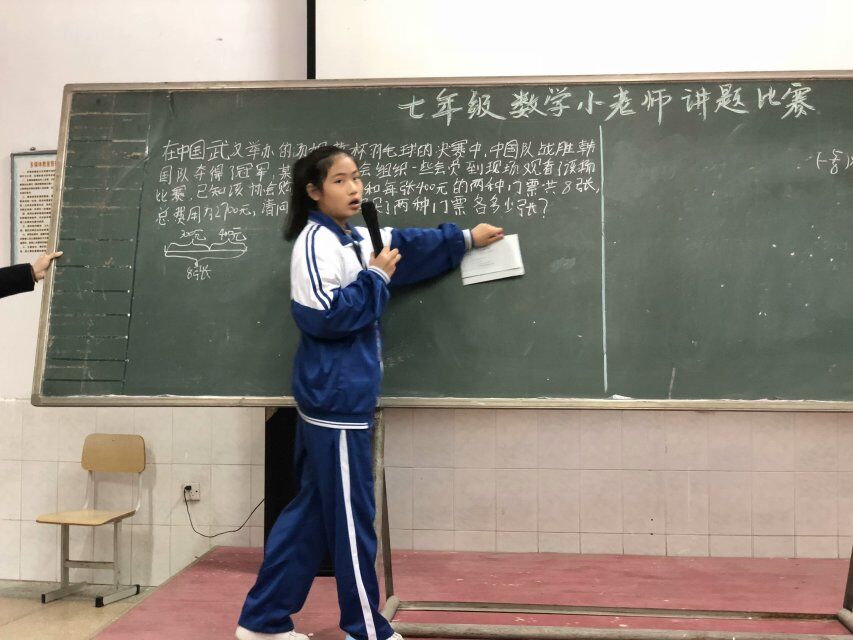 七年级数学小老师讲题比赛
在中国武汉举办的 杯羽毛球的决赛中,中国队战胜韩
国队夺得了冠军,某 会组织一些会员到现场观看了该场
比赛,已知该协会购 和每张400元的两种门票共8张,
总费用为2700元,请问 买了两种门票各多少张?
300元 400元
8张